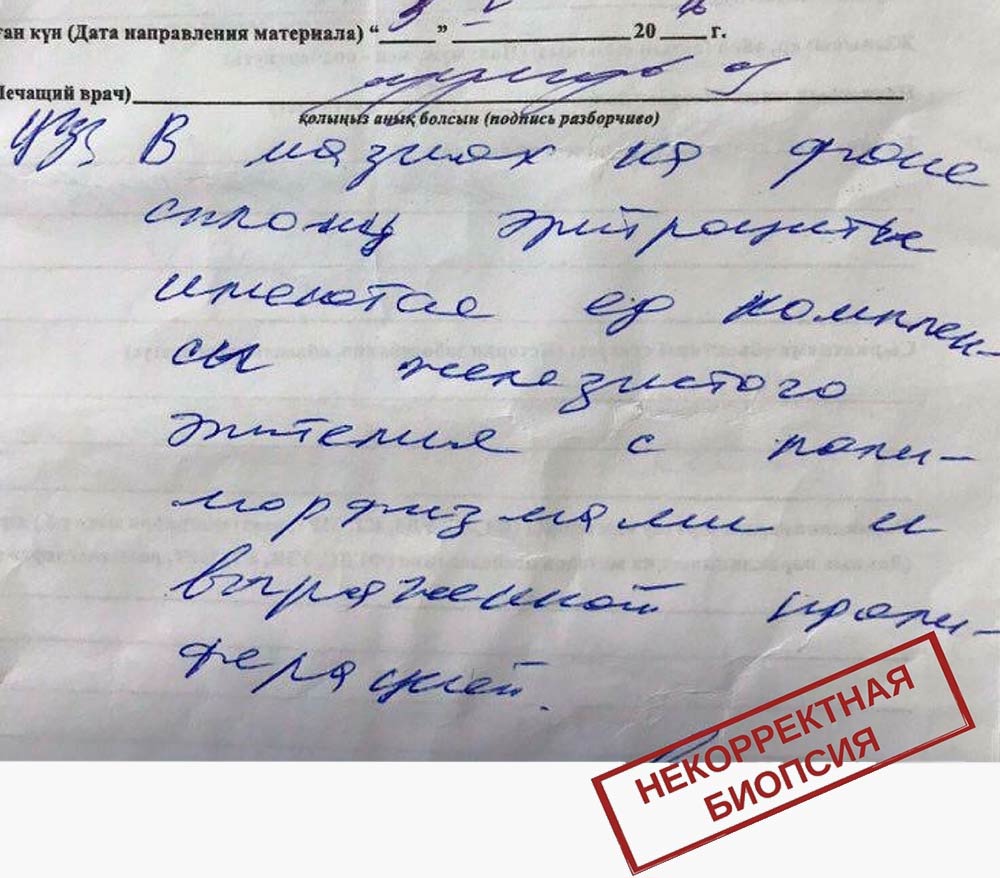 ған күн (Дата направления материала) “ 3 ” V 20 г.
Лечащий врач)
қолыңыз анық болсын (подпись разборчиво)
В мазках на фоне
сплошн эритроцитов
имеются ед комплек-
сы железистого
эпителия с поли-
морфизмами и
выраженной проли-
ферацией.
НЕКОРРЕКТНАЯ
БИОПСИЯ